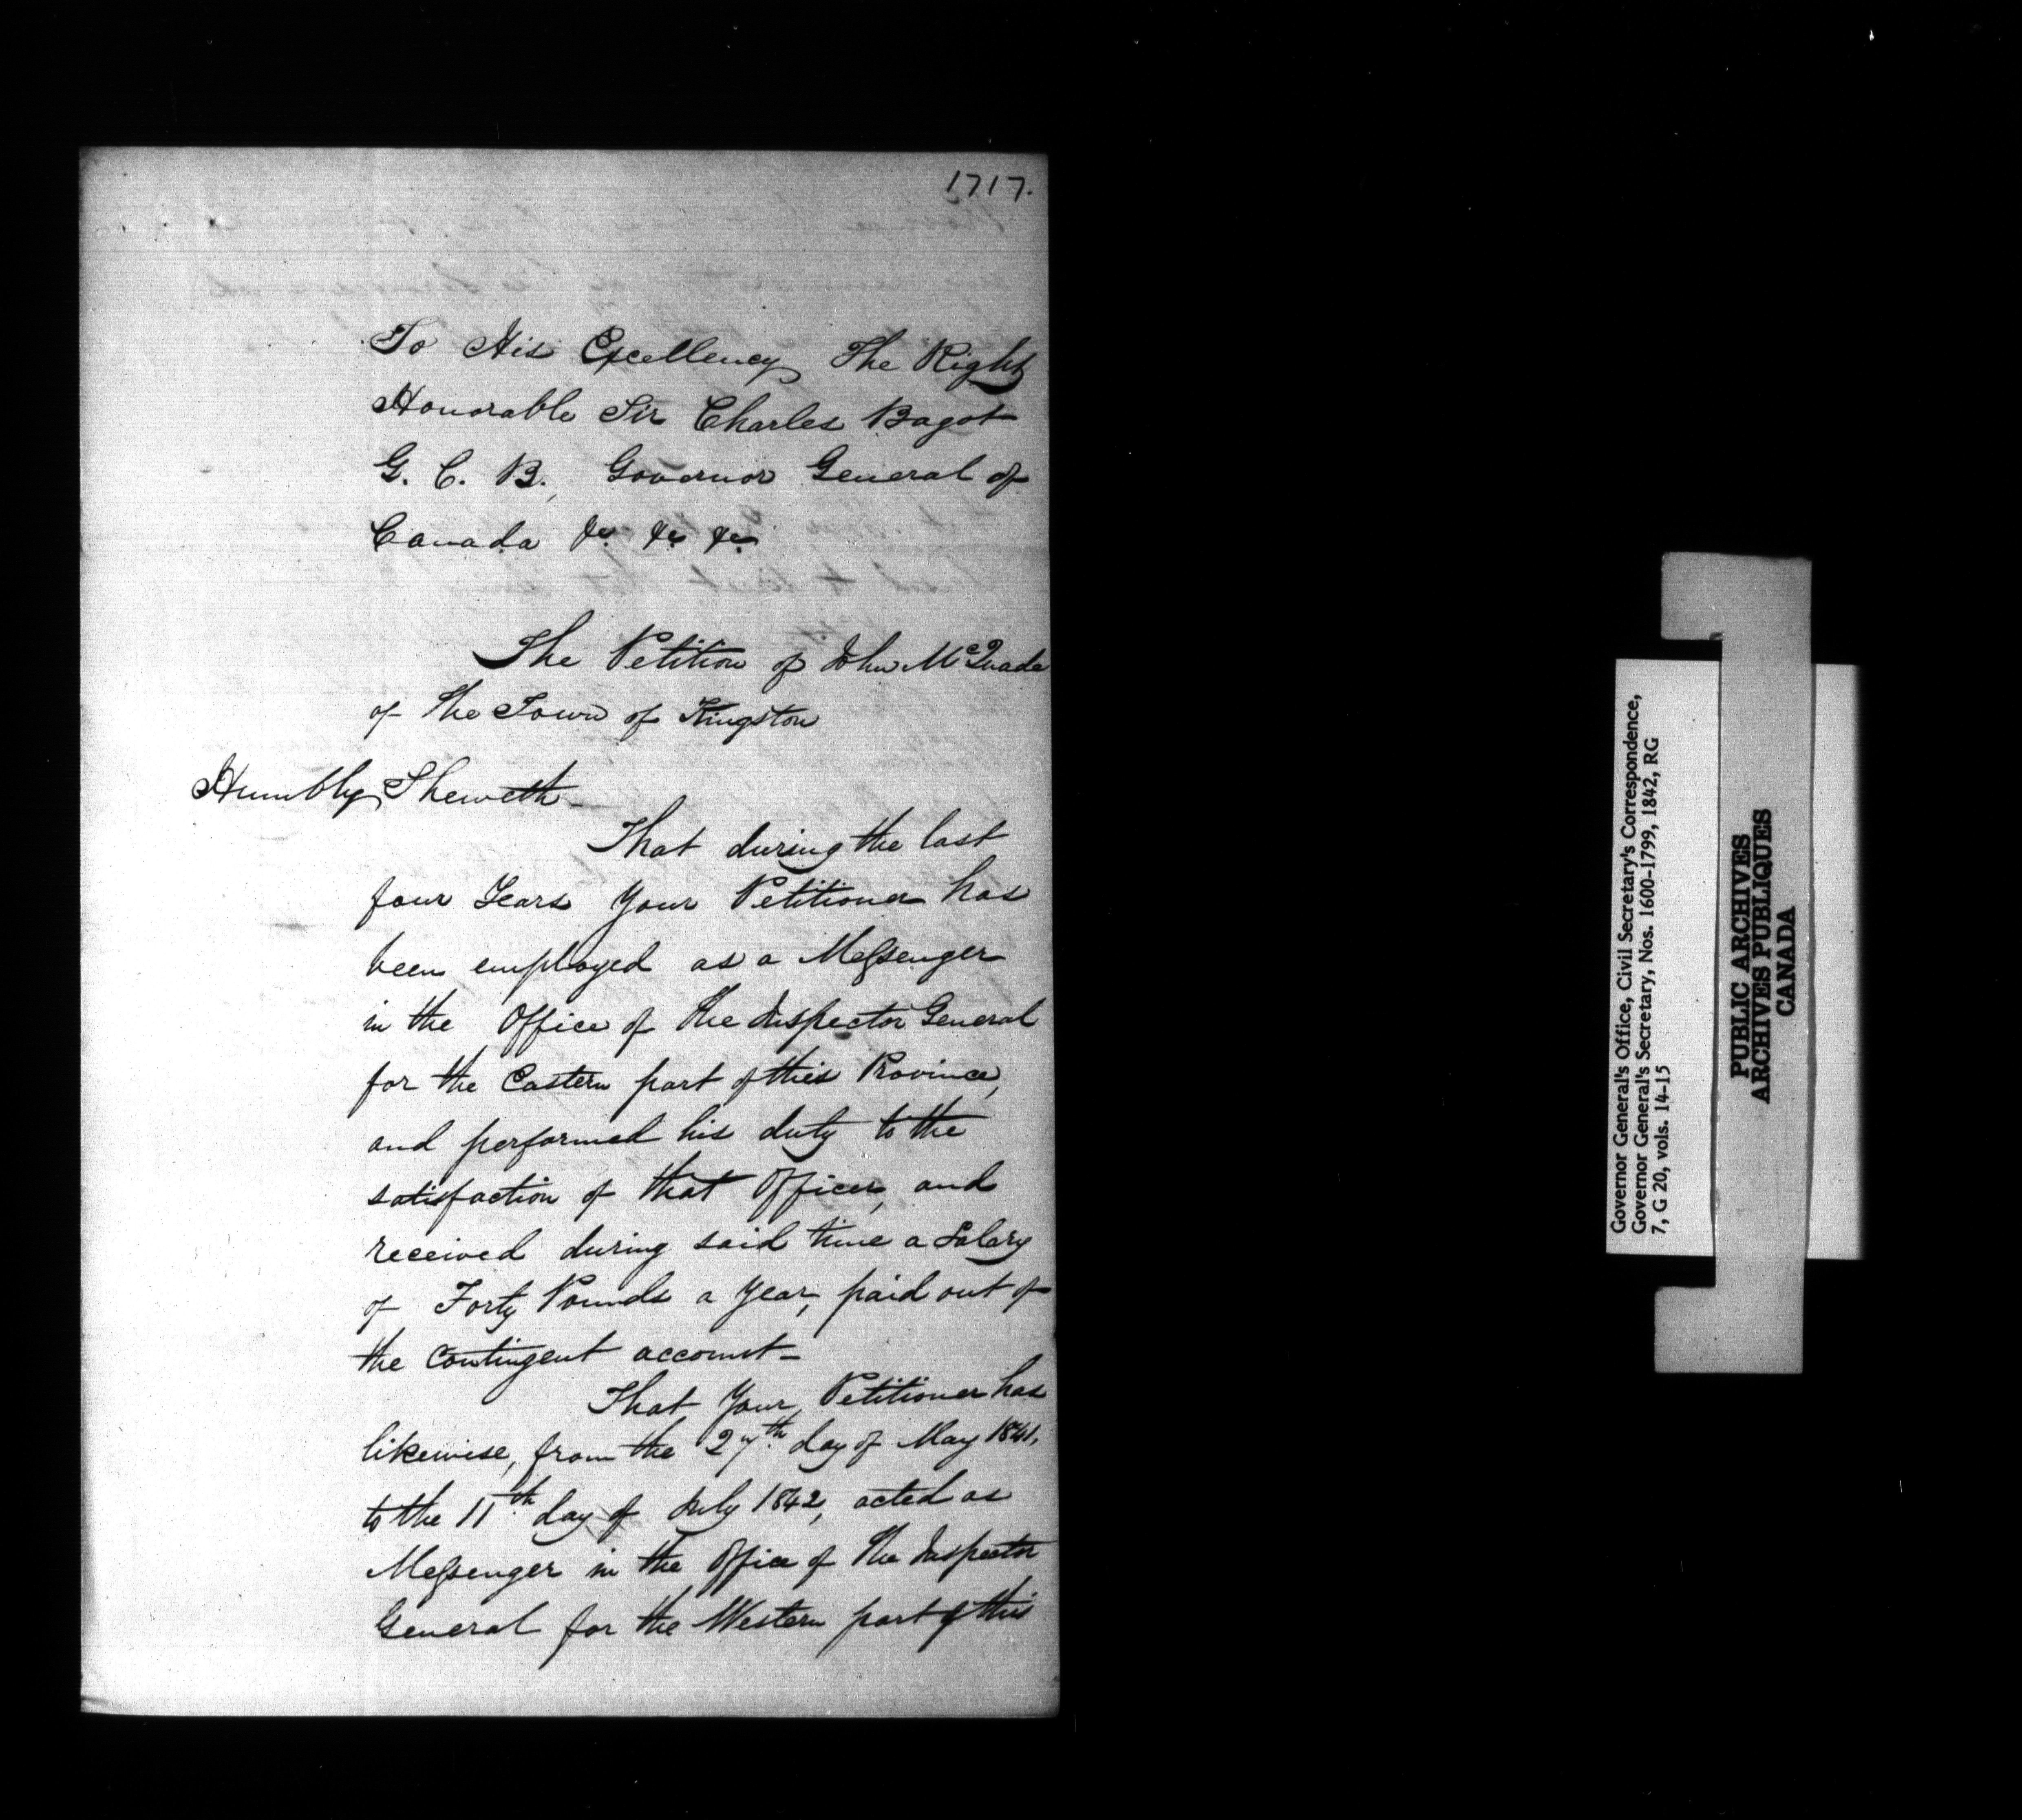 1717.
To His Excellency The Right
Honorable Sir Charles Bagot
G. C. B., Governor General of
Canada &c &c &c
The Petition of John McQuade
of the Town of Kingston
Humbly Sheweth_
That during the last
four Years Your Petitioner has
been employed as a Messenger
in the Office of the Inspector General
for the Eastern part of this Province,
and performed his duty to the
satisfaction of that Officer, and
received during said time a Salary
of Forty Pounds a Year, paid out of
the Contingent account_
That Your Petitioner has
likewise, from the 27th day of May 1841,
to the 11th day of July 1842, acted as
Messenger in the Office of the Inspector
General for the Western part of this
Governor General's Office, Civil Secretary's Correspondence,
Governor General's Secretary, Nos. 1600-1799, 1842, RG
7, G 20, vols. 14-15
PUBLIC ARCHIVES
ARCHIVES PUBLIQUES
CANADA